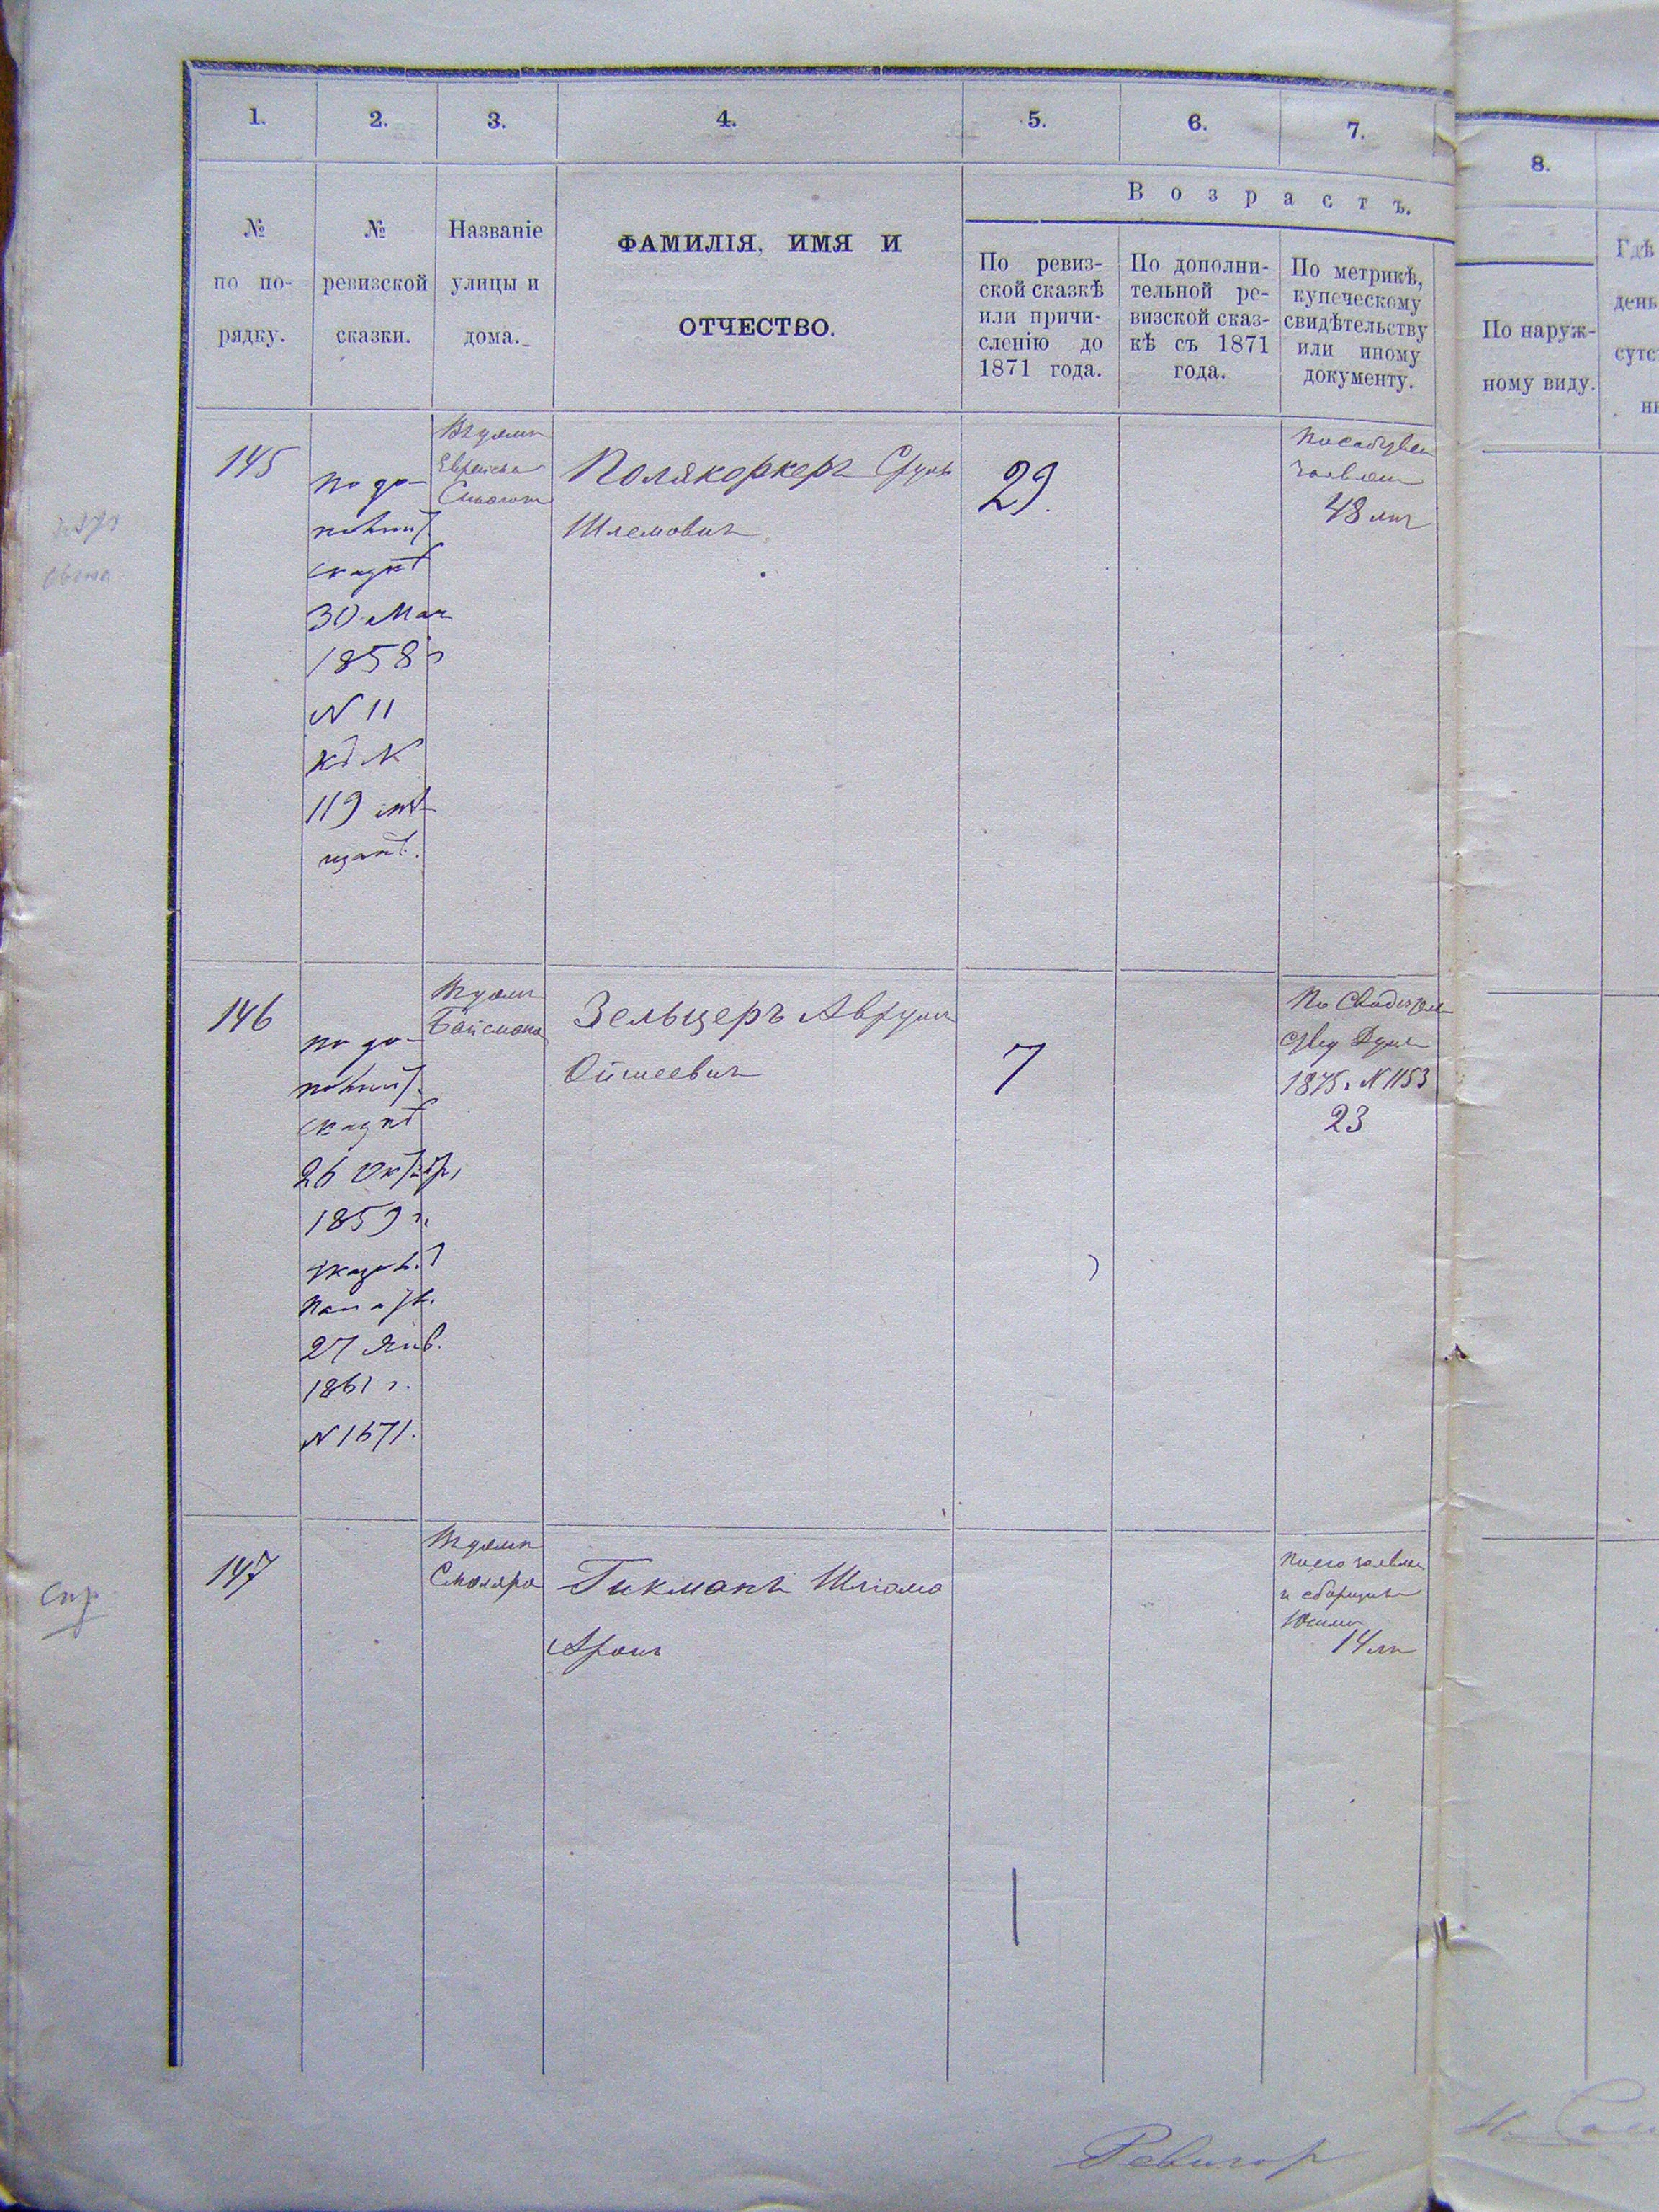 1.
2.
3.
4.
5.
6.
7.
8.
№
по по-
рядку.
№
ревизской
сказки.
Названіе
улицы и
дома.
ФАМИЛІЯ, ИМЯ И
ОТЧЕСТВО.
Возрастъ.
По ревиз-
ской сказкѣ
или причи-
сленію до
1871 года.
По дополни-
тельной ре-
визской сказ-
кѣ съ 1871
года.
По метрикѣ,
купеческому
свидѣтельству
или иному
документу.
По наруж-
ному виду.
Гдѣ
день
сутс
145
по до-
полнит.
сказкѣ
30 Мая
1858 г
N 11
къ N
119
Полякеркеръ Сруль
Шлемовичъ
29.
заявлен
48 лѣт
146
по до-
полнит.
сказкѣ
26 Октябр.
1859 г.
указ.
Палаты
27 Янв.
1861 г.
N 1671.
Вайсмана
Зельцеръ Аврумъ
Ойшеевичъ
7
По
Думы
1875 г N 1153
23
147
Смоляра
Гикманъ Шліома
Аронъ
заявлен
и сборщика
14 лѣт
Спр
Ревизор